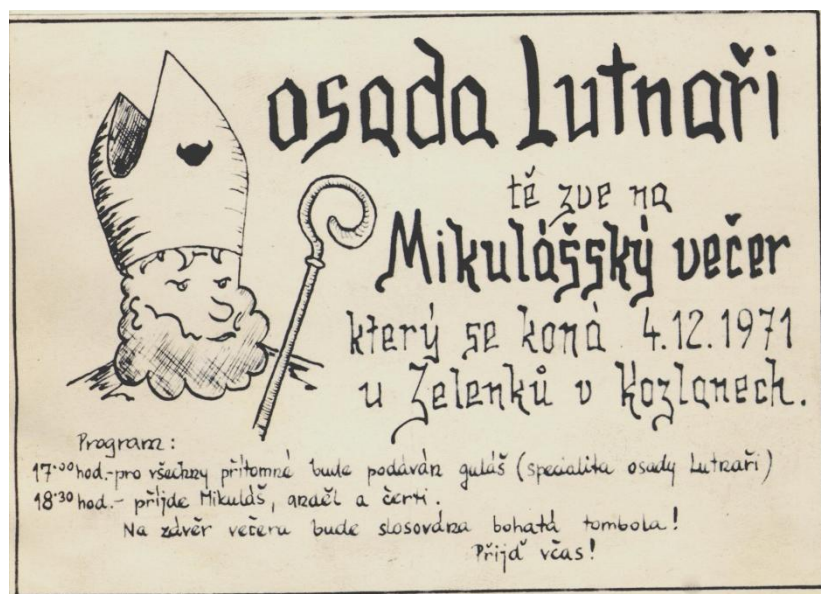 osada Lutnaři
tě zve na
Mikulášský večer
který se koná 4.12.1971
u Zelenků v Kozlanech.
Program:
17.00 hod.-pro všechny přítomné bude podáván guláš (specialita osady Lutnaři)
18.30 hod.- příjde Mikuláš, anděl a čerti.
Na závěr večera bude slosována bohatá tombola!
Přijď včas!